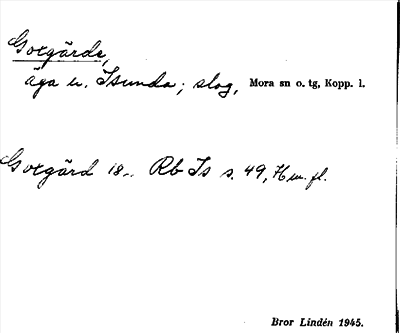 Govgärde,
äga u. Isunda; slog, Mora sn o. tg, Kopp. l.
Govgärd 18-. Rb Is s. 49, H m. fl.
Bror Lindén 1945.